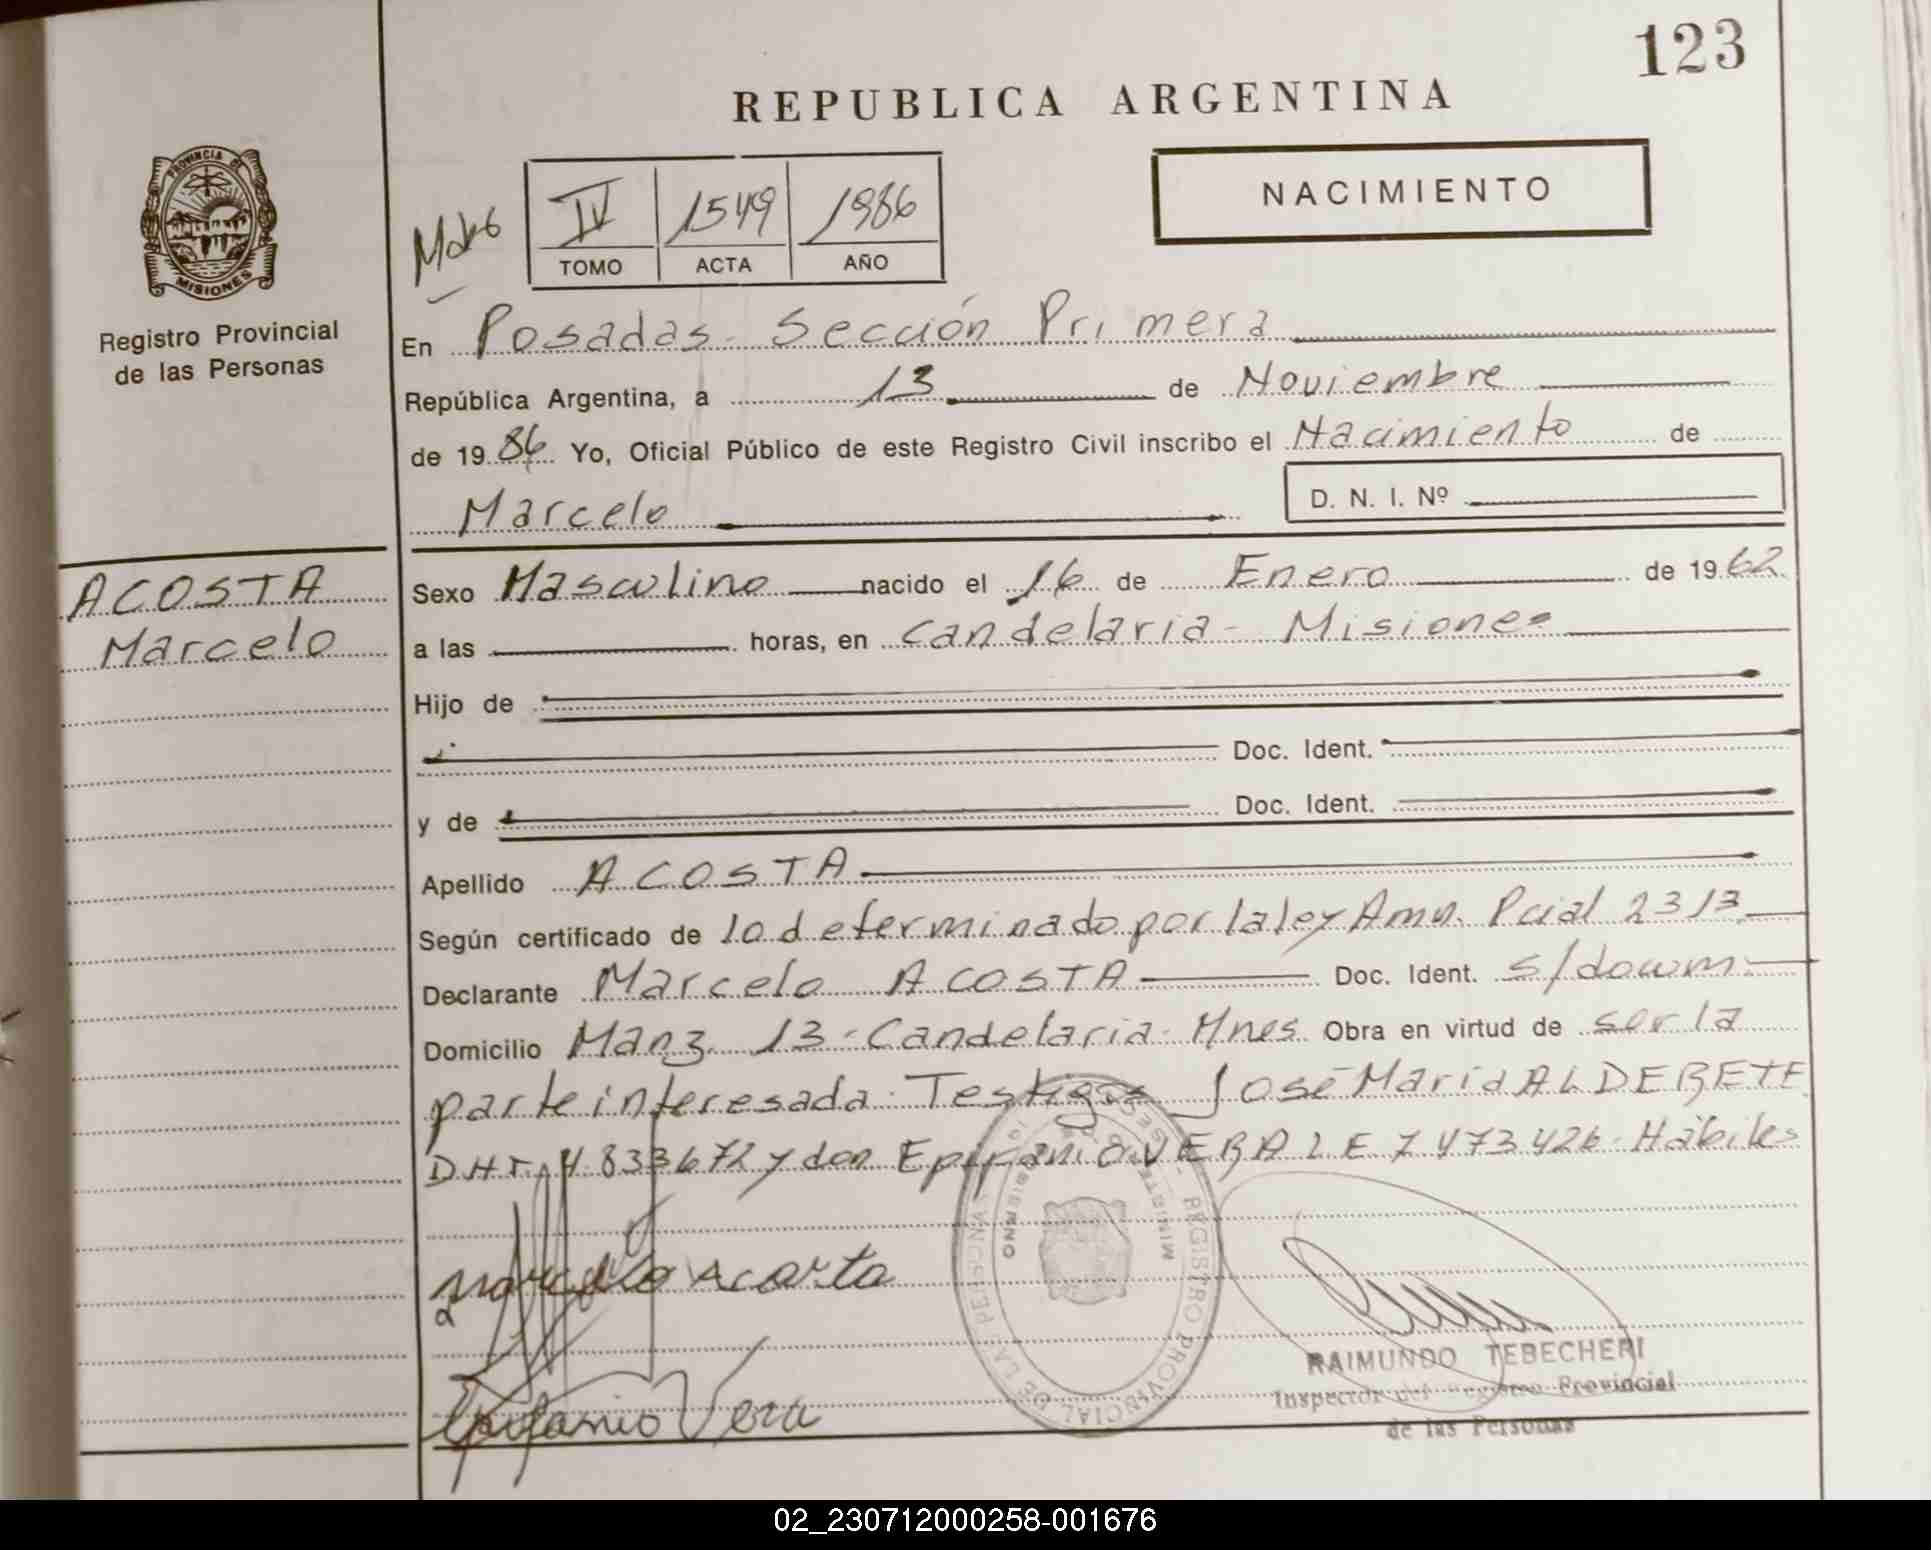 123
REPUBLICA ARGENTINA
PROVINCIA DE
MISIONES
Registro Provincial
de las Personas
IV 1549 1986
TOMO ACTA AÑO
NACIMIENTO
En Posadas - Sección Primera
República Argentina, a 13 de Noviembre
de 1986 Yo, Oficial Público de este Registro Civil inscribo el Nacimiento de
Marcelo
D. N. I. Nº
ACOSTA
Marcelo
Sexo Masculino nacido el 16 de Enero de 1962
a las horas, en Candelaria - Misiones
Hijo de
Doc. Ident.
y de Doc. Ident.
Apellido ACOSTA
Según certificado de lo determinado por la ley Amn. Pcial 2313
Declarante Marcelo ACOSTA Doc. Ident. s/docum
Domicilio Manz. 13 - Candelaria - Mnes. Obra en virtud de ser la
parte interesada. Testigos José María ALDERETE
4.833672 y don Epifanio VERA L E 7 473 426. Hábiles
Marcelo Acosta
Epifanio Vera
REGISTRO PROVINCIAL DE LAS PERSONAS
RAIMUNDO TEBECHERI
Inspector del Registro Provincial
de las Personas
02_230712000258-001676